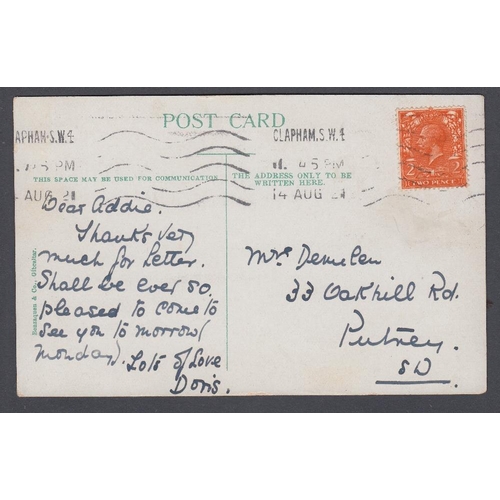 POST CARD
CLAPHAM.S.W.4
45 PM
14 AUG 21
APHAM.S.W.4
45 PM
AUG 21
TWO PENCE
THIS SPACE MAY BE USED FOR COMMUNICATION
THE ADDRESS ONLY TO BE
WRITTEN HERE.
Dear Addie.
Thanks very
much for letter.
Shall be ever so
pleased to come to
see you to morrow
(Monday).
Lots of Love
Doris.
Mrs
33 Oakhill Rd.
Putney.
SW
& Co., Gibraltar.